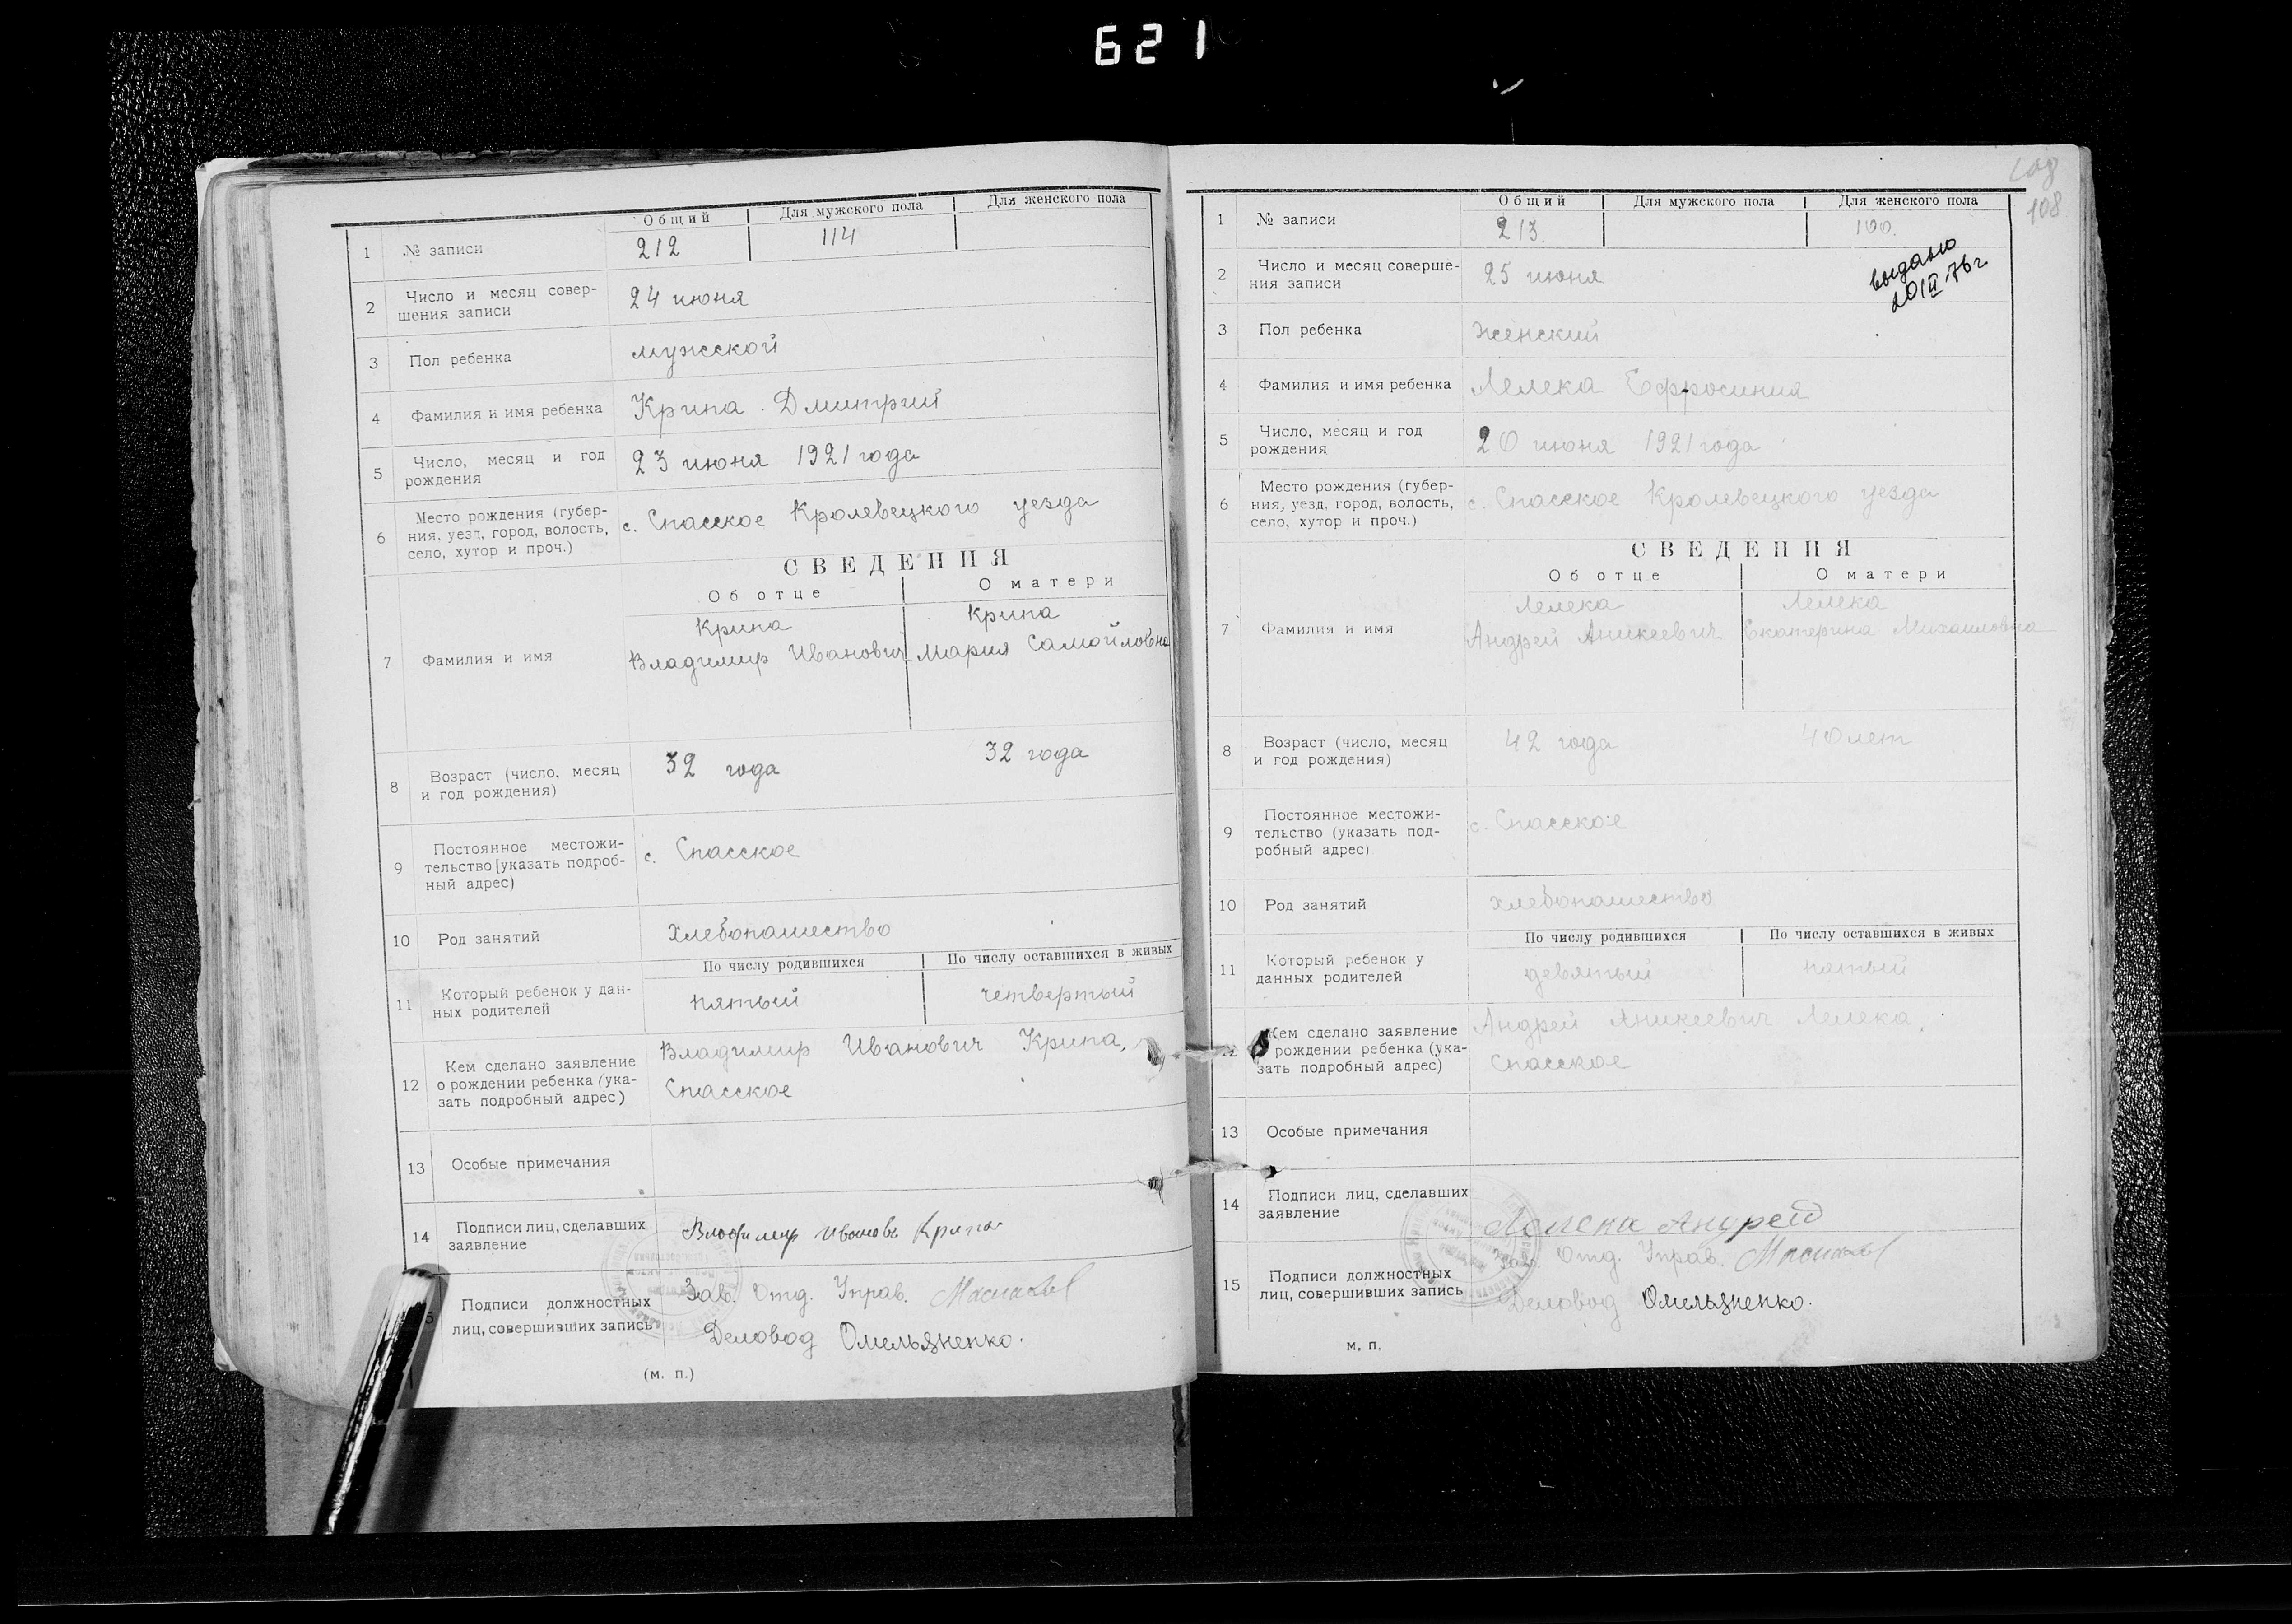 621
Общий Для мужского пола Для женского пола
1 № записи 212 114
2 Число и месяц совер-
шения записи 24 июня
3 Пол ребенка мужской
4 Фамилия и имя ребенка Крипа Дмитрий
5 Число, месяц и год
рождения 23 июня 1921 года
6 Место рождения (губер-
ния, уезд, город, волость,
село, хутор и проч.) с. Спасское Кролевецкого уезда
СВЕДЕНИЯ
Об отце О матери
Крипа Крипа
7 Фамилия и имя Владимир Иванович Мария Самойловна
8 Возраст (число, месяц
и год рождения) 32 года 32 года
9 Постоянное местожи-
тельство (указать подроб-
ный адрес) с. Спасское
10 Род занятий Хлебопашество
По числу родившихся По числу оставшихся в живых
11 Который ребенок у дан-
ных родителей пятый четвертый
12 Кем сделано заявление
о рождении ребенка (ука-
зать подробный адрес) Владимир Иванович Крипа,
Спасское
13 Особые примечания
14 Подписи лиц, сделавших
заявление Крипа
15 Подписи должностных
лиц, совершивших запись Зав. Отд. Управ.
Деловод Омельяненко.
(м. п.)
108
108
Общий Для мужского пола Для женского пола
1 № записи 213. 100.
выдано
20/II 76 г
2 Число и месяц соверше-
ния записи 25 июня
3 Пол ребенка женский
4 Фамилия и имя ребенка Лелека Ефросиния
5 Число, месяц и год
рождения 20 июня 1921 года
6 Место рождения (губер-
ния, уезд, город, волость,
село, хутор и проч.) с. Спасское Кролевецкого уезда
СВЕДЕНИЯ
Об отце О матери
Лелека Лелека
7 Фамилия и имя Андрей Аникеевич Екатерина Михайловна
8 Возраст (число, месяц
и год рождения) 42 года 40 лет
9 Постоянное местожи-
тельство (указать под-
робный адрес) с. Спасское
10 Род занятий хлебопашество
По числу родившихся По числу оставшихся в живых
11 Который ребенок у
данных родителей девятый пятый
12 Кем сделано заявление
о рождении ребенка (ука-
зать подробный адрес) Андрей Аникеевич Лелека,
Спасское
13 Особые примечания
14 Подписи лиц, сделавших
заявление Лелека Андрей
15 Подписи должностных
лиц, совершивших запись Зав. Отд. Управ.
Деловод Омельяненко.
м. п.